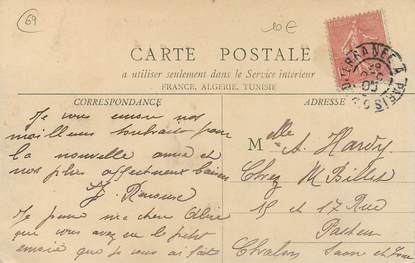 69
10€
CARTE POSTALE
a utiliser seulement dans le Service interieur
FRANCE, ALGERIE, TUNISIE
CORRESPONDANCE
ADRESSE
Je vous envoie nos
meilleurs souhaits pour
la nouvelle année et
nos plus affectueux baisers
Je pense ma chère
que vous avez eu le petit
envoie que je vous ai fait
Melle A. Hardy
Chez M Billet
15 et 17 Rue
Pasteur
Chalon Saone et Loire